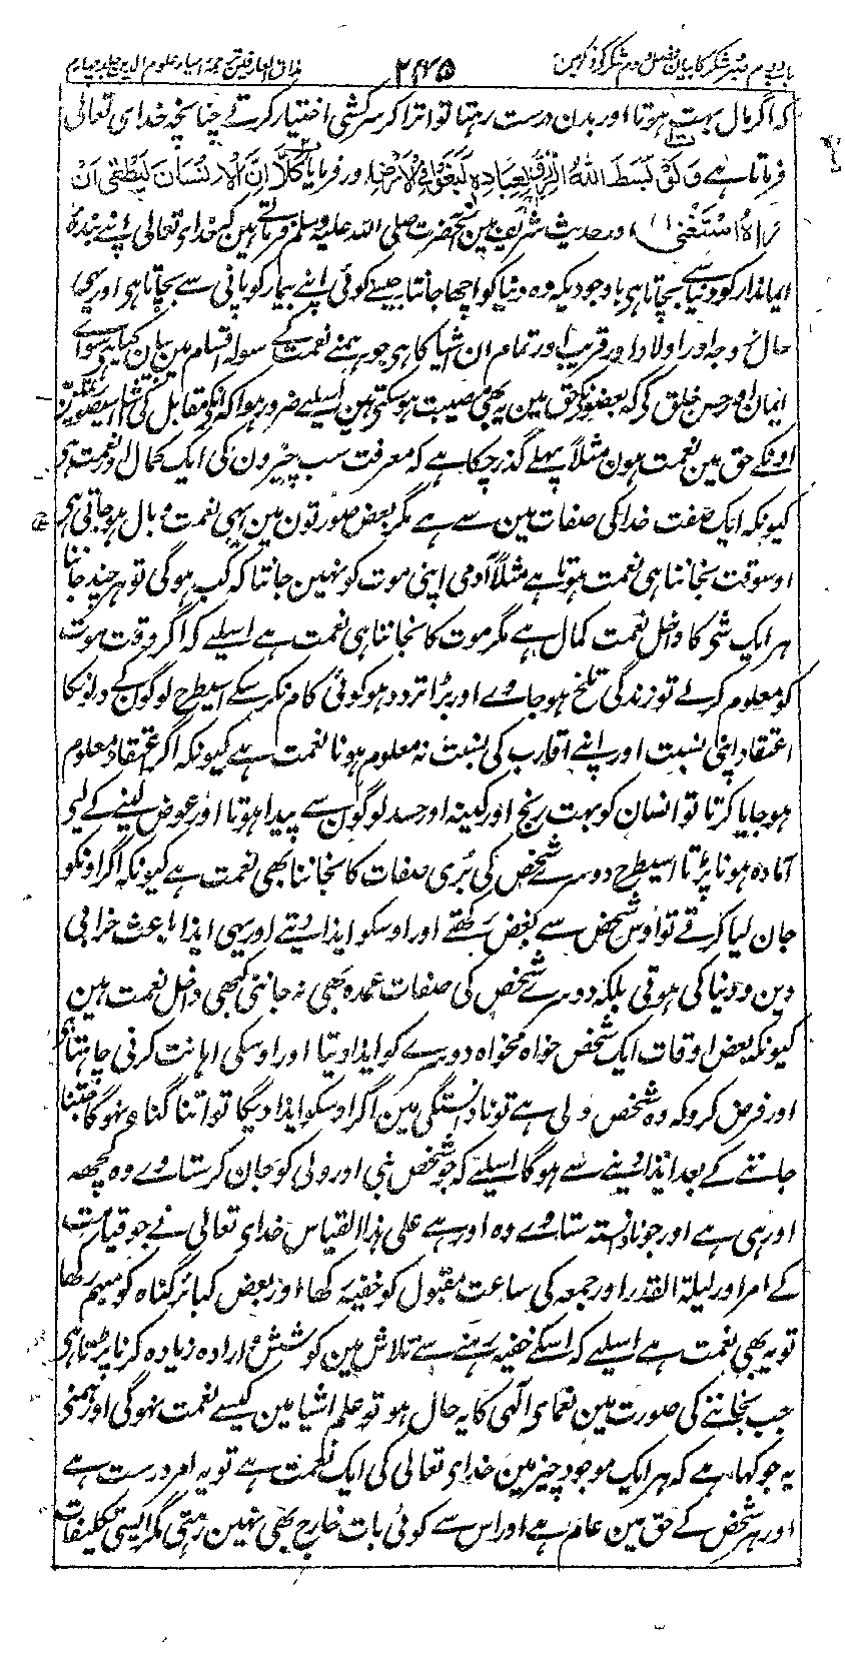 باب دوم صبر شکر کا بیان فصل دوم شکر کے ذکر مین ۲۴۵ مذاق العارفین ترجمہ احیاء علوم الدین جلد چہارم
کہ اگر مال بہت ہوتا اور بدن درست رہتا تو اترا کر سرکشی اختیار کرتے چنانچہ خدای تعالی
فرماتا ہے وَلَوْ بَسَطَ اللہُ الرِّزْقَ لِعِبَادِہٖ لَبَغَوْا فِی الْاَرْضِ اور فرمایا کَلَّا اِنَّ الْاِنْسَانَ لَیَطْغٰی اَنْ
رَاٰہُ اسْتَغْنٰی اور حدیث شریف مین آنحضرت صلی اللہ علیہ وسلم فرماتے ہین کہ خدای تعالی اپنے بندہ
ایماندار کو دنیا سے بچاتا ہی باوجودیکہ وہ دنیا کو اچھا جانتا جیسے کوئی اپنے بیمار کو پانی سے بچاتا ہی اور یہی
حال زوجہ اور اولاد اور قریب اور تمام ان اشیا کا ہی جو ہمنے نعمت کے سولہ اقسام مین بیان کیا ہی سوائے
ایمان اور حسن خلق کی کہ بعضونکے حق مین یہ بھی مصیبت ہو سکتی ہین اسلیے ضرور ہوا کہ انکی مقابل کی
اونکے حق مین نعمت ہون مثلاً پہلے گذر چکا ہے کہ معرفت سب چیزون کی ایک کمال اور نعمت ہی
کیونکہ ایک صفت خدا کی صفات مین سے ہے مگر بعض صورتون مین یہی نعمت وبال ہو جاتی ہی
اوسوقت نجاننا ہی نعمت ہوتا ہے مثلاً آدمی اپنی موت کو نہین جانتا کہ کب ہوگی تو ہر چند جاننا
ہر ایک شی کا داخل نعمت کمال ہے مگر موت کا نجاننا ہی نعمت ہے اسلیے کہ اگر وقت موت
کو معلوم کرلے تو زندگی تلخ ہو جاوے اور بڑا تردد ہو کوئی کام نکر سکے اسیطرح لوگون کے دلونکا
اعتقاد اپنی نسبت اور اپنے اقارب کی نسبت نہ معلوم ہونا نعمت ہے کیونکہ اگر اعتقاد معلوم
ہو جایا کرتا تو انسان کو بہت رنج اور کینہ اور حسد لوگون سے پیدا ہوتا اور عوض لینے کے لیے
آمادہ ہونا پڑتا اسیطرح دوسرے شخص کی بُری صفات کا نجاننا بھی نعمت ہے کیونکہ اگر اونکو
جان لیا کرتے تو اوس شخص سے بغض رکھتے اور اوسکو ایذا دیتے اور یہی ایذا باعث خرابی
دین و دنیا کی ہوتی بلکہ دوسرے شخص کی صفات عمدہ بھی نہ جاننی کبھی داخل نعمت ہین
کیونکہ بعض اوقات ایک شخص خواہ مخواہ دوسرے کو ایذا دیتا اور اوسکی اہانت کرنی چاہتا ہی
اور فرض کرو کہ وہ شخص ولی ہے تو نادانستگی مین اگر اوسکو ایذا دیگا تو اتنا گناہ نہوگا جتنا
جاننے کے بعد ایذا دینے سے ہوگا اسلیے کہ جو شخص نبی اور ولی کو جان کر ستاوے وہ کچھ
اور ہی ہے اور جو نادانستہ ستاوے وہ اور ہے علی ہذا القیاس خدای تعالی نے جو قیامت
کے امر اور لیلۃ القدر اور جمعہ کی ساعت مقبول کو خفیہ رکھا اور بعض کبائر گناہ کو مبہم رکھا
تو یہ بھی نعمت ہے اسلیے کہ اسکے خفیہ رہنے سے تلاش مین کوشش و ارادہ زیادہ کرنا پڑتا ہی
جب نجاننے کی صورت مین نعمای الٰہی کا یہ حال ہو تو علم اشیا مین کیسے نعمت نہوگی اور ہمنے
یہ جو کہا ہے کہ ہر ایک موجود چیز مین خدای تعالی کی ایک نعمت ہے تو یہ امر درست ہے
اور ہر شخص کے حق مین عام ہے اور اس سے کوئی بات خارج بھی نہین رہتی مگر ایسی تکلیفات